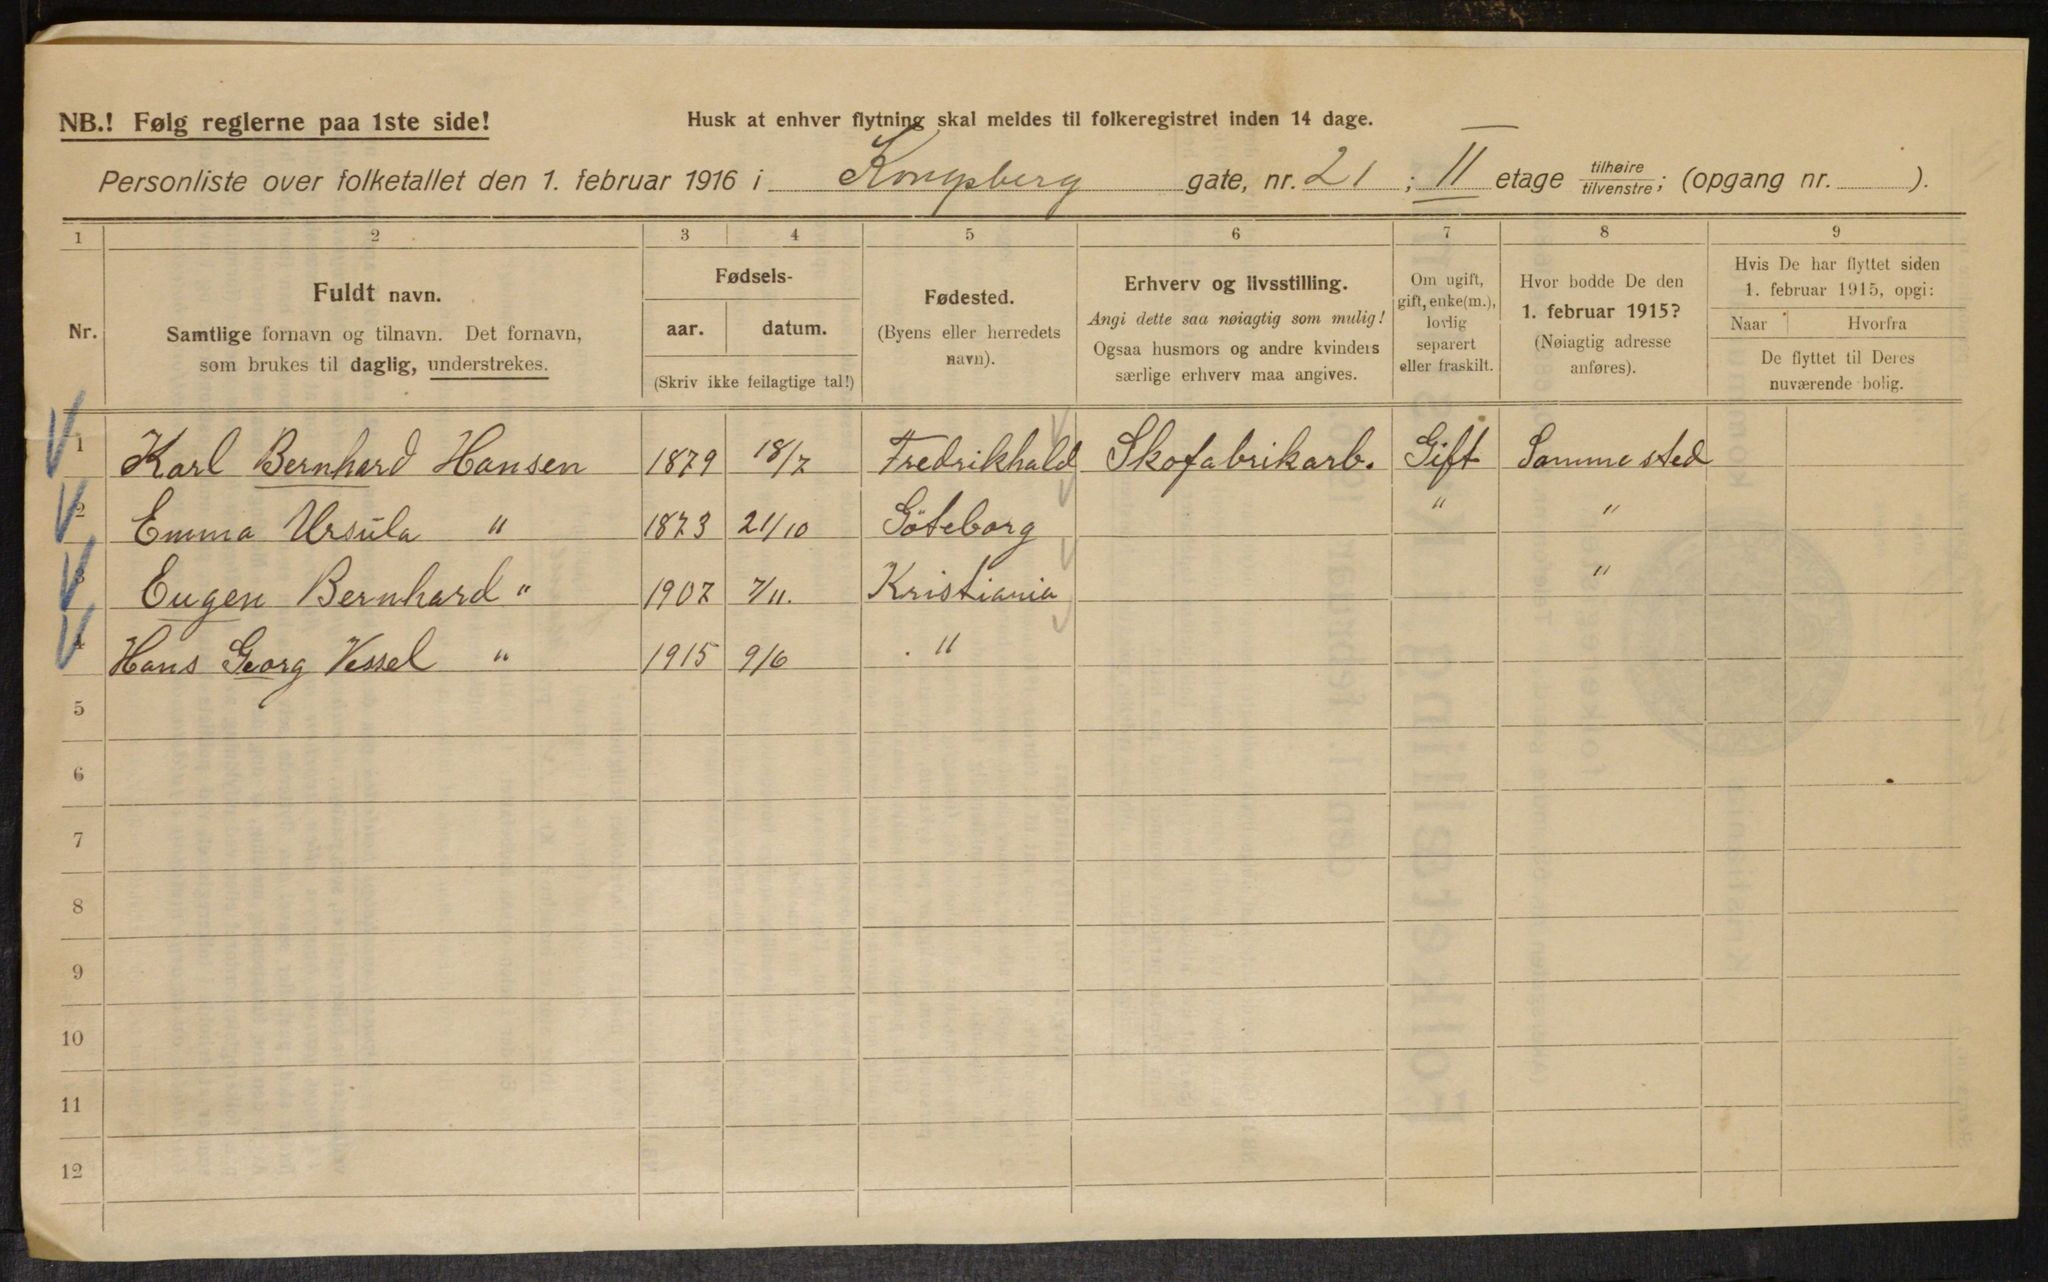 NB.! Følg reglerne paa 1ste side!
Husk at enhver flytning skal meldes til folkeregistret inden 14 dage.
Personliste over folketallet den 1. februar 1916 i Kongsberg gate, nr. 21 ; II etage tilhøire tilvenstre; (opgang nr. ).
1 2 3 4 5 6 7 8 9
Nr.
Fuldt navn.
Samtlige fornavn og tilnavn. Det fornavn,
som brukes til daglig, understrekes.
Fødsels-
aar. datum.
(Skriv ikke feilagtige tal!)
Fødested.
(Byens eller herredets
navn).
Erhverv og livsstilling.
Angi dette saa nøiagtig som mulig!
Ogsaa husmors og andre kvinders
særlige erhverv maa angives.
Om ugift,
gift, enke(m.),
lovlig
separert
eller fraskilt.
Hvor bodde De den
1. februar 1915?
(Nøiagtig adresse
anføres).
Hvis De har flyttet siden
1. februar 1915, opgi:
Naar Hvorfra
De flyttet til Deres
nuværende bolig.
1 Karl Bernhard Hansen 1879 18/7 Fredrikhald Skofabrikarb. Gift Samme sted
2 Emma Ursula " 1873 21/10 Göteborg " "
3 Eugen Bernhard " 1907 7/11. Kristiania "
4 Hans Georg Vessel " 1915 9/6 "
5
6
7
8
9
10
11
12